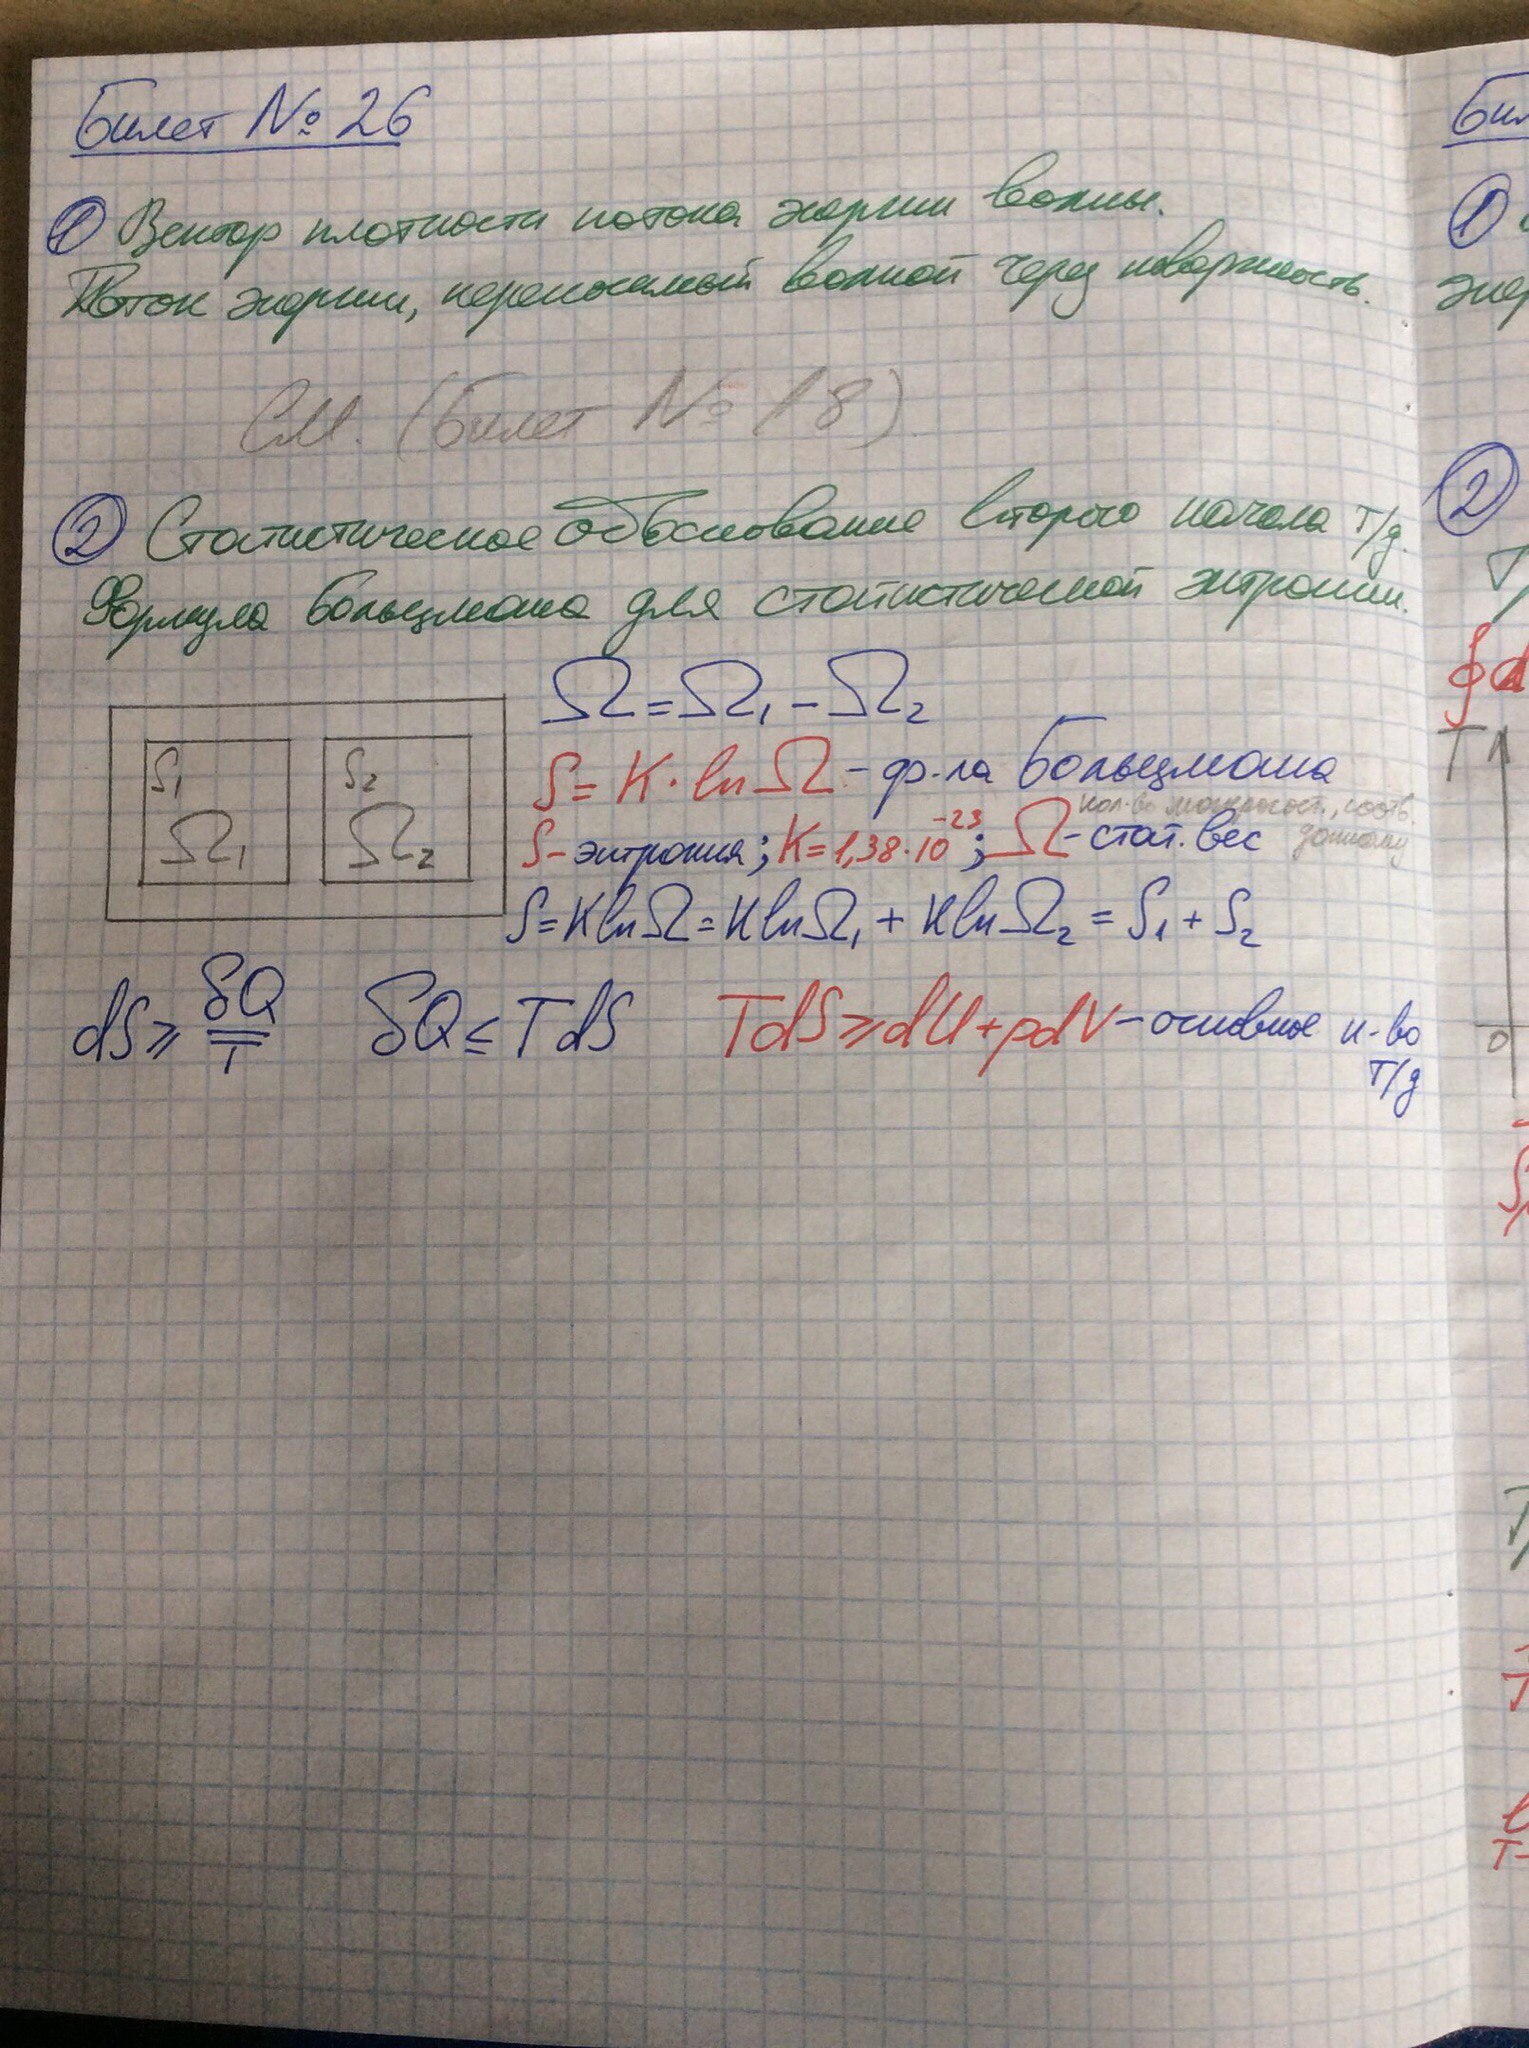 Билет № 26
① Вектор плотности потока энергии волны.
Поток энергии, переносимый волной через поверхность.
См. (Билет № 18)
② Статистическое обоснование второго начала т/д.
Формула Больцмана для статистической энтропии.
Ω = Ω₁ - Ω₂
S₁ S₂
Ω₁ Ω₂
S = K · ln Ω - ф-ла Больцмана
кол-во макросост., соотв.
S - энтропия; K = 1,38·10⁻²³; Ω - стат. вес данному
S = K ln Ω = K ln Ω₁ + K ln Ω₂ = S₁ + S₂
dS ≥ δQ/T δQ ≤ TdS TdS ≥ dU + pdV - основное н-во
т/д
Бил
①
энер
②
T
0